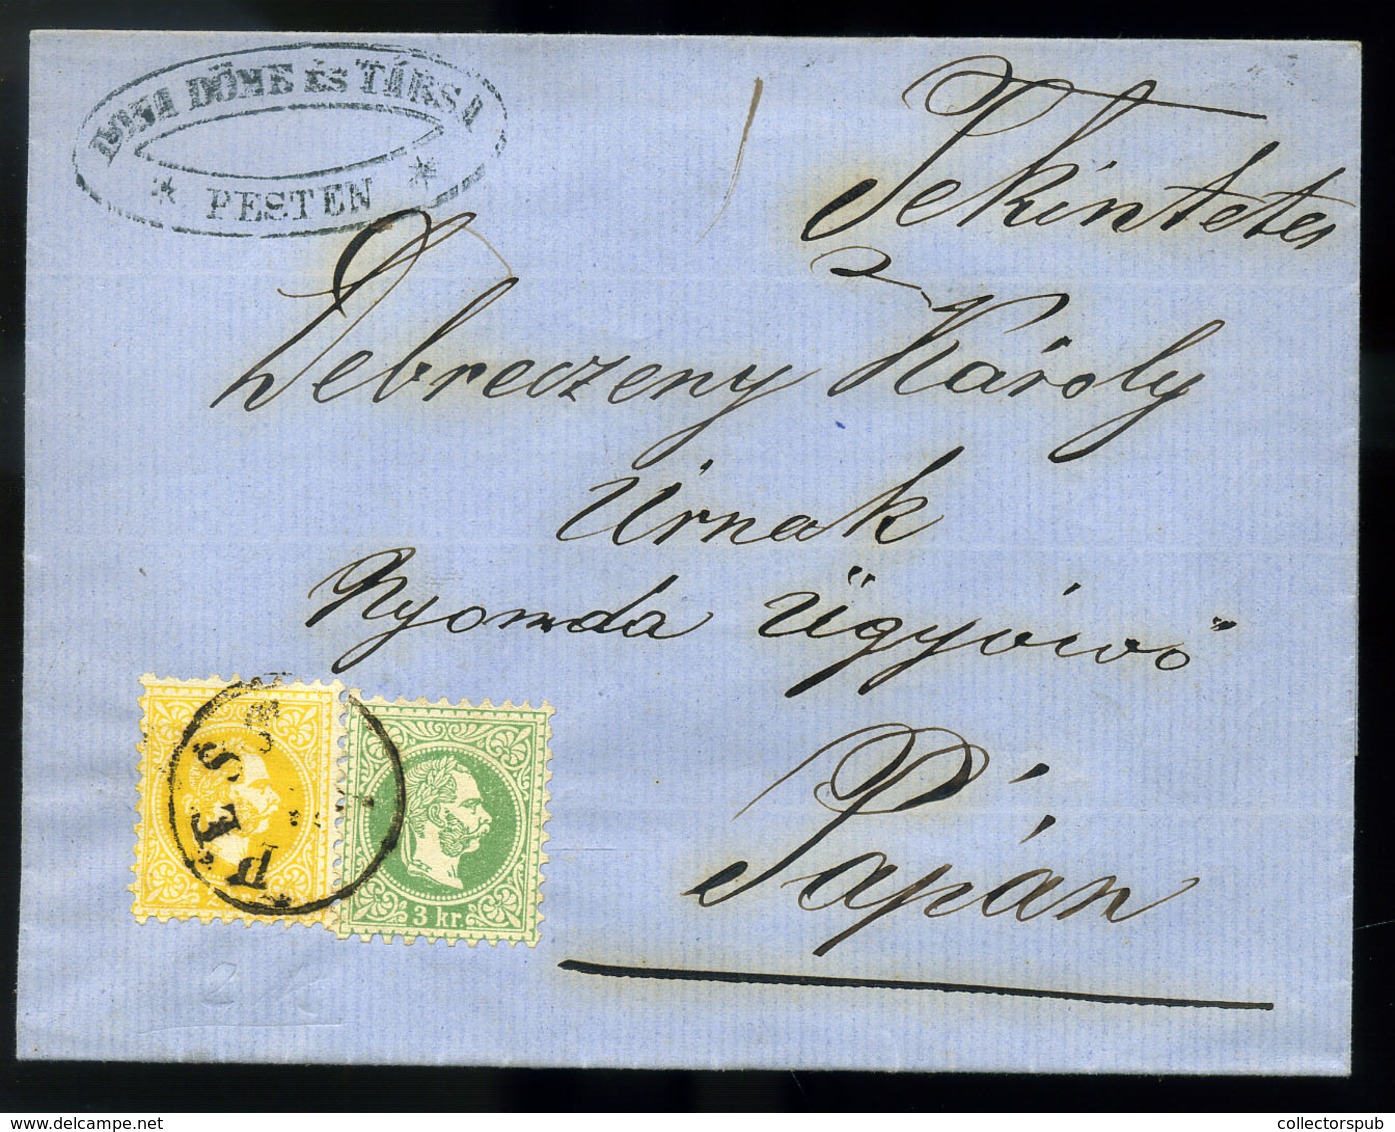 DÖME ÉS TÁRSA
* PESTEN *
Tekintetes
Debreczeny Károly
Úrnak
Nyomda Ügyvivő
Pápán
PEST
3 kr.
collectorspub